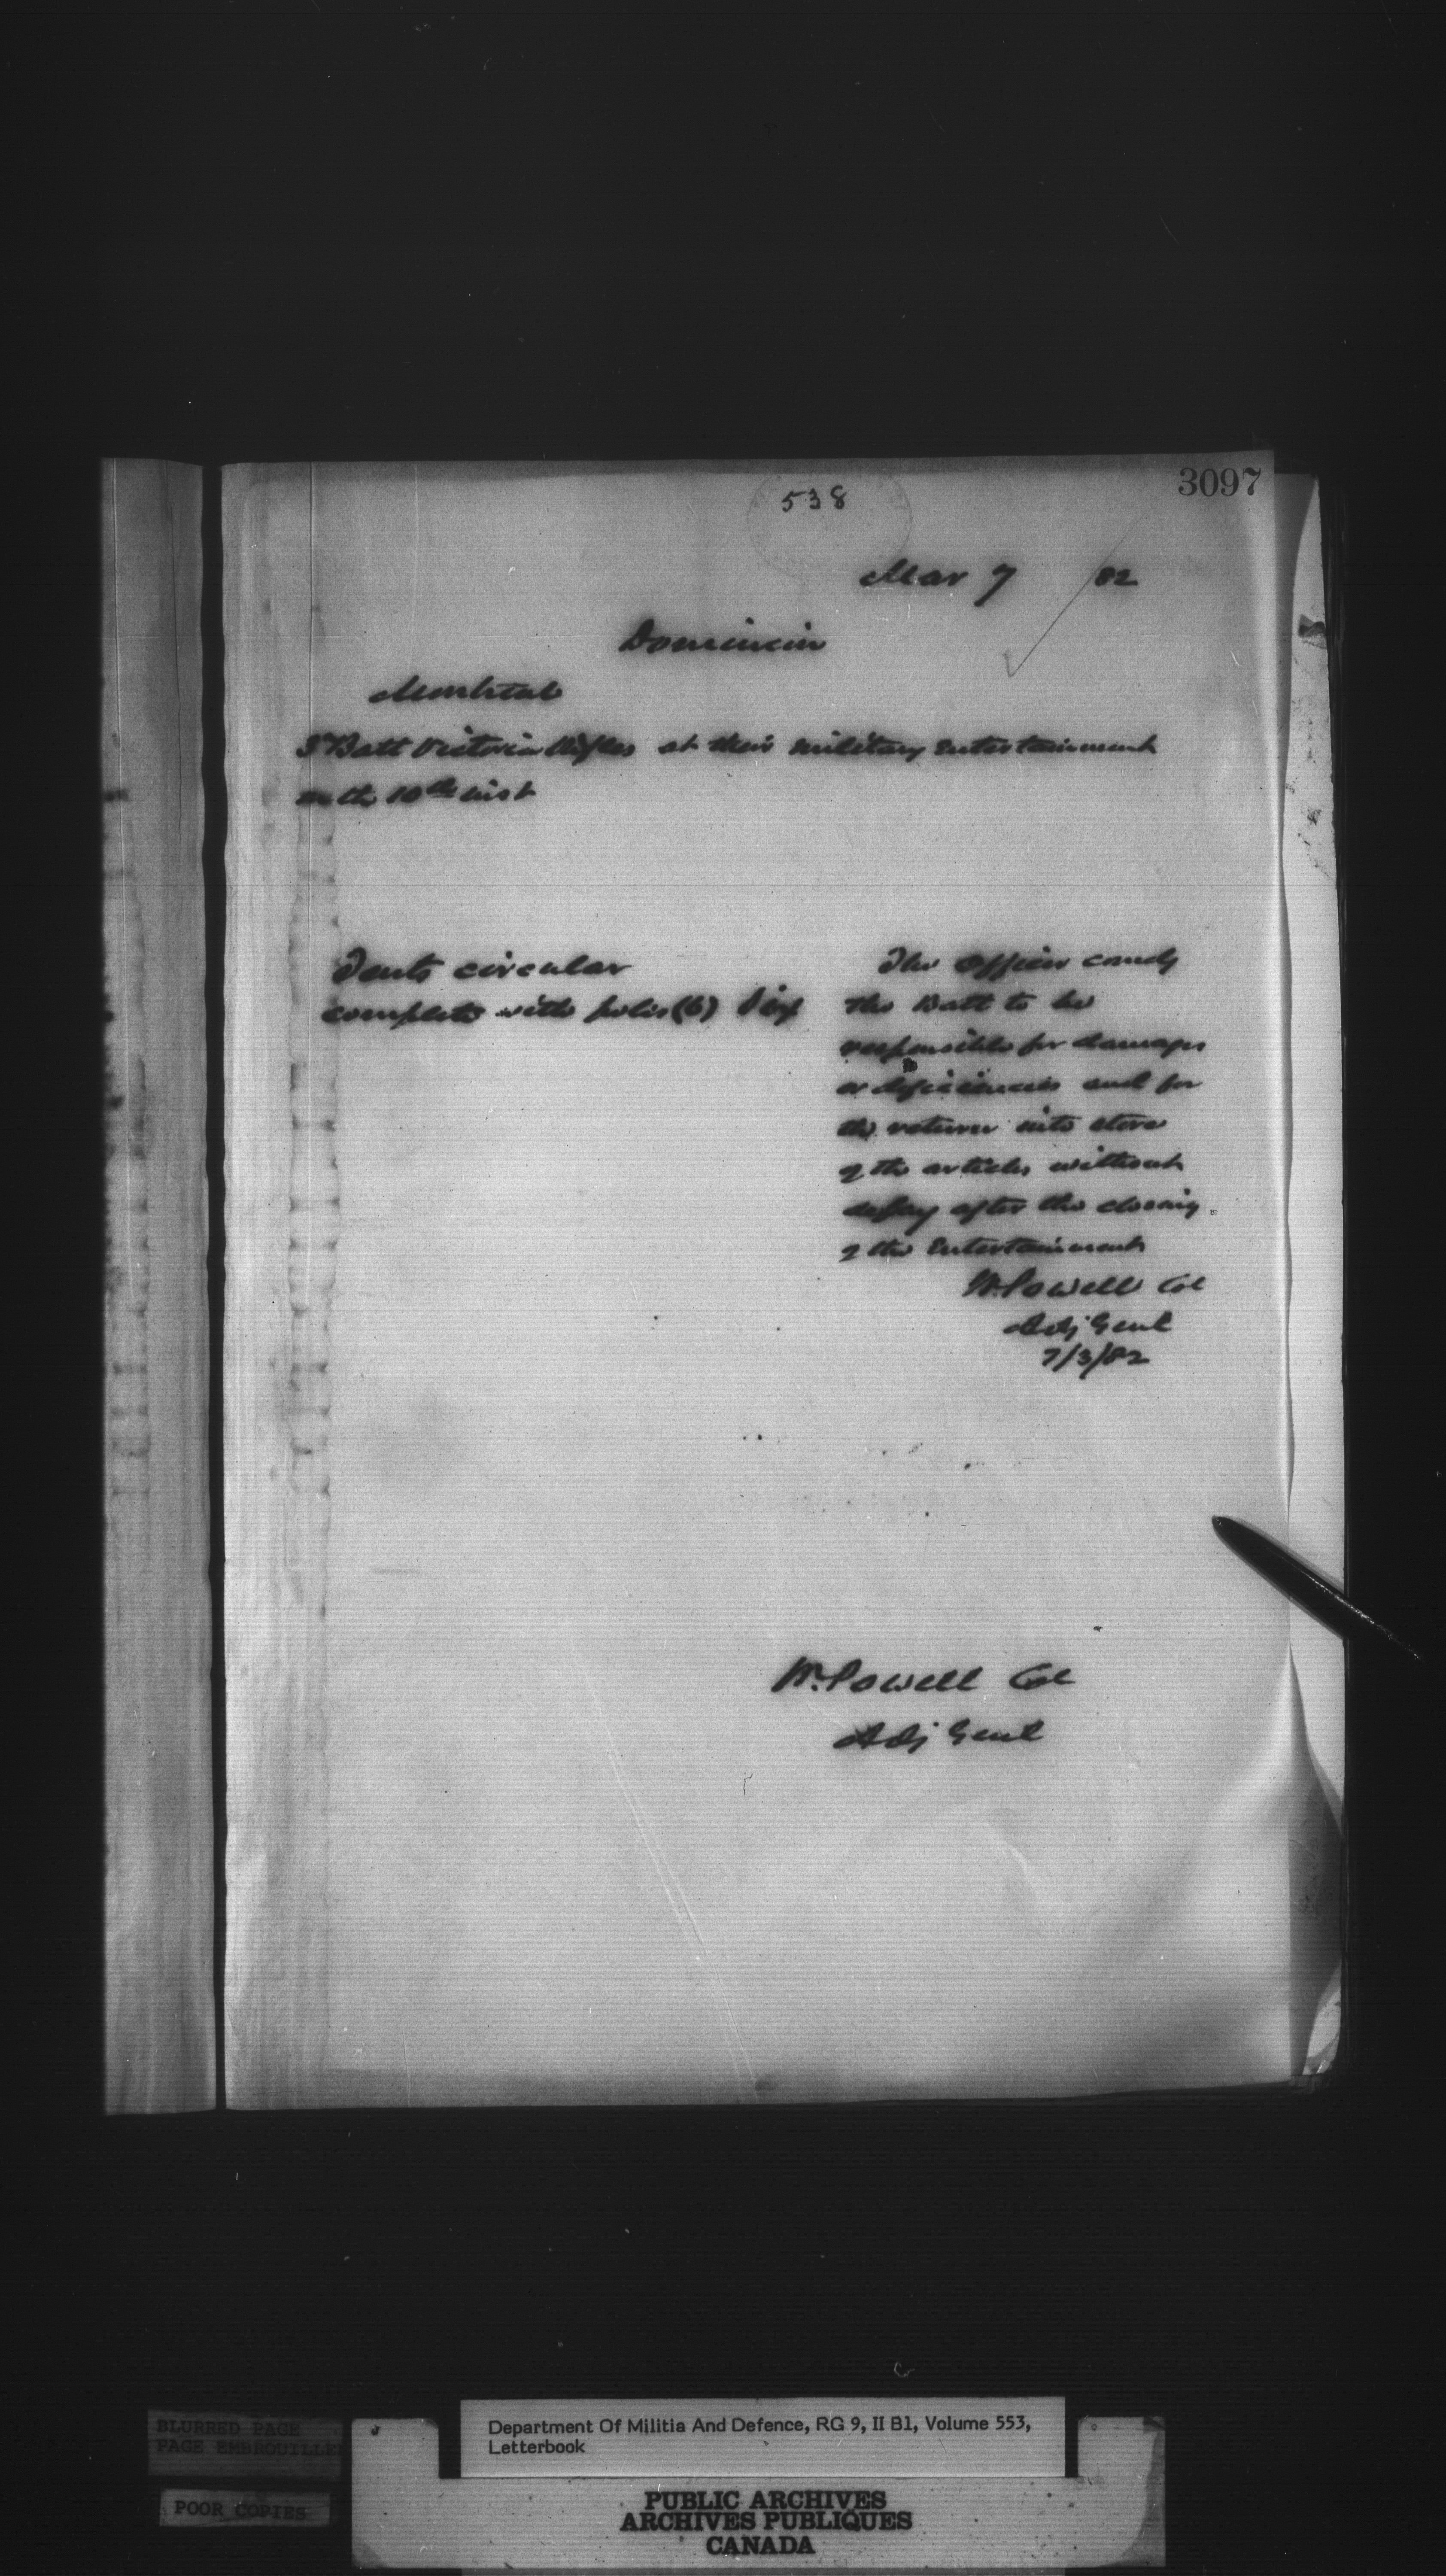 3097
538
Mar 7 /82
Dominion
Montreal
3 Batt Victoria Rifles at their military Entertainment
on the 10th inst
Tents circular
complete with poles (6) Six
The Officer comdg
the Batt to be
responsible for damages
or deficiencies and for
the return into store
of the articles without
delay after the closing
of the Entertainment
W. Powell Col
Adj Genl
7/3/82
W. Powell Col
Adj Genl
BLURRED PAGE
PAGE EMBROUILLEE
POOR COPIES
Department Of Militia And Defence, RG 9, II B1, Volume 553,
Letterbook
PUBLIC ARCHIVES
ARCHIVES PUBLIQUES
CANADA